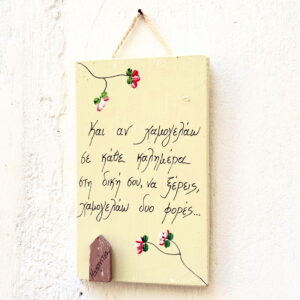 Και αν χαμογελάω
σε κάθε καλημέρα
στη δική σου, να ξέρεις,
χαμογελάω δυο φορές...